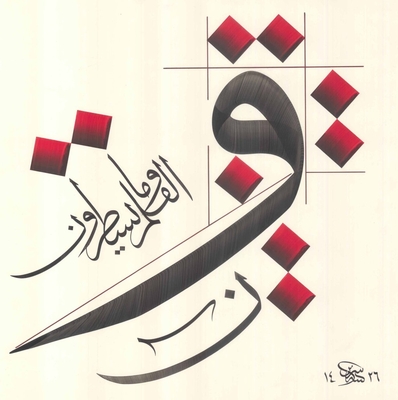 ن
و
القلم وما يسطرون
١٤ ٢٦